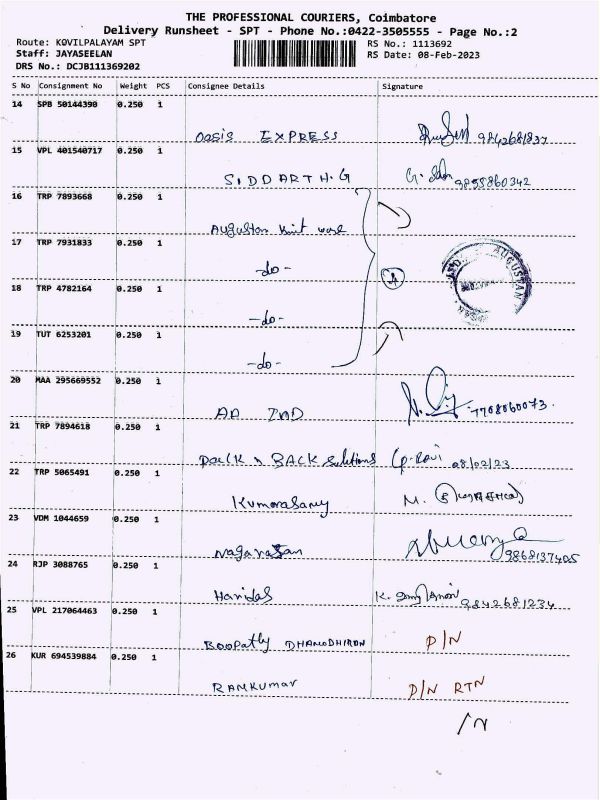 THE PROFESSIONAL COURIERS, Coimbatore
Delivery Runsheet - SPT - Phone No.:0422-3505555 - Page No.:2
Route: KOVILPALAYAM SPT RS No.: 1113692
Staff: JAYASEELAN RS Date: 08-Feb-2023
DRS No.: DCJB111369202
S No Consignment No Weight PCS Consignee Details Signature
14 SPB 50144390 0.250 1
Oasis EXPRESS 9842681837
15 VPL 401540717 0.250 1
SIDDARTH.G 9855860342
16 TRP 7893668 0.250 1
Augustan knit
17 TRP 7931833 0.250 1
-do- A AUGUSTAN
18 TRP 4782164 0.250 1
-do-
19 TUT 6253201 0.250 1
-do-
20 MAA 295669552 0.250 1
7708060073.
21 TRP 7894618 0.250 1
BACK Solutions P. Ravi 08/02/23
22 TRP 5065491 0.250 1
Kumarasamy M.
23 VDM 1044659 0.250 1
Nagarasan 9868137405
24 RJP 3088765 0.250 1
Haridas 9842681234
25 VPL 217064463 0.250 1
Boopathy DHAMODHIRAN D/N
26 KUR 694539884 0.250 1
RAMKUMAR D/N RTN
/N